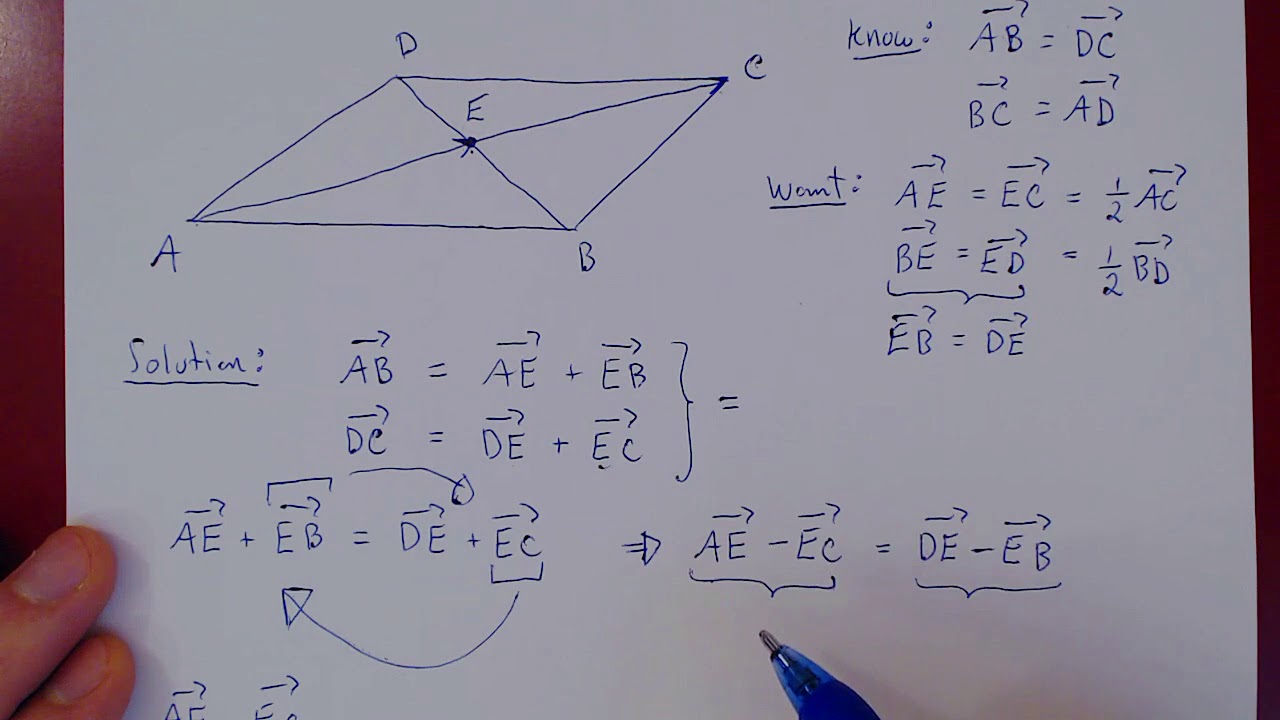 D
C
E
A
B
Know: \overrightarrow{AB} = \overrightarrow{DC}
\overrightarrow{BC} = \overrightarrow{AD}
Want: \overrightarrow{AE} = \overrightarrow{EC} = \frac{1}{2} \overrightarrow{AC}
\overrightarrow{BE} = \overrightarrow{ED} = \frac{1}{2} \overrightarrow{BD}
\overrightarrow{EB} = \overrightarrow{DE}
Solution: \overrightarrow{AB} = \overrightarrow{AE} + \overrightarrow{EB} } =
\overrightarrow{DC} = \overrightarrow{DE} + \overrightarrow{EC}
\overrightarrow{AE} + \overrightarrow{EB} = \overrightarrow{DE} + \overrightarrow{EC} ⇒ \overrightarrow{AE} - \overrightarrow{EC} = \overrightarrow{DE} - \overrightarrow{EB}
\overrightarrow{AE}